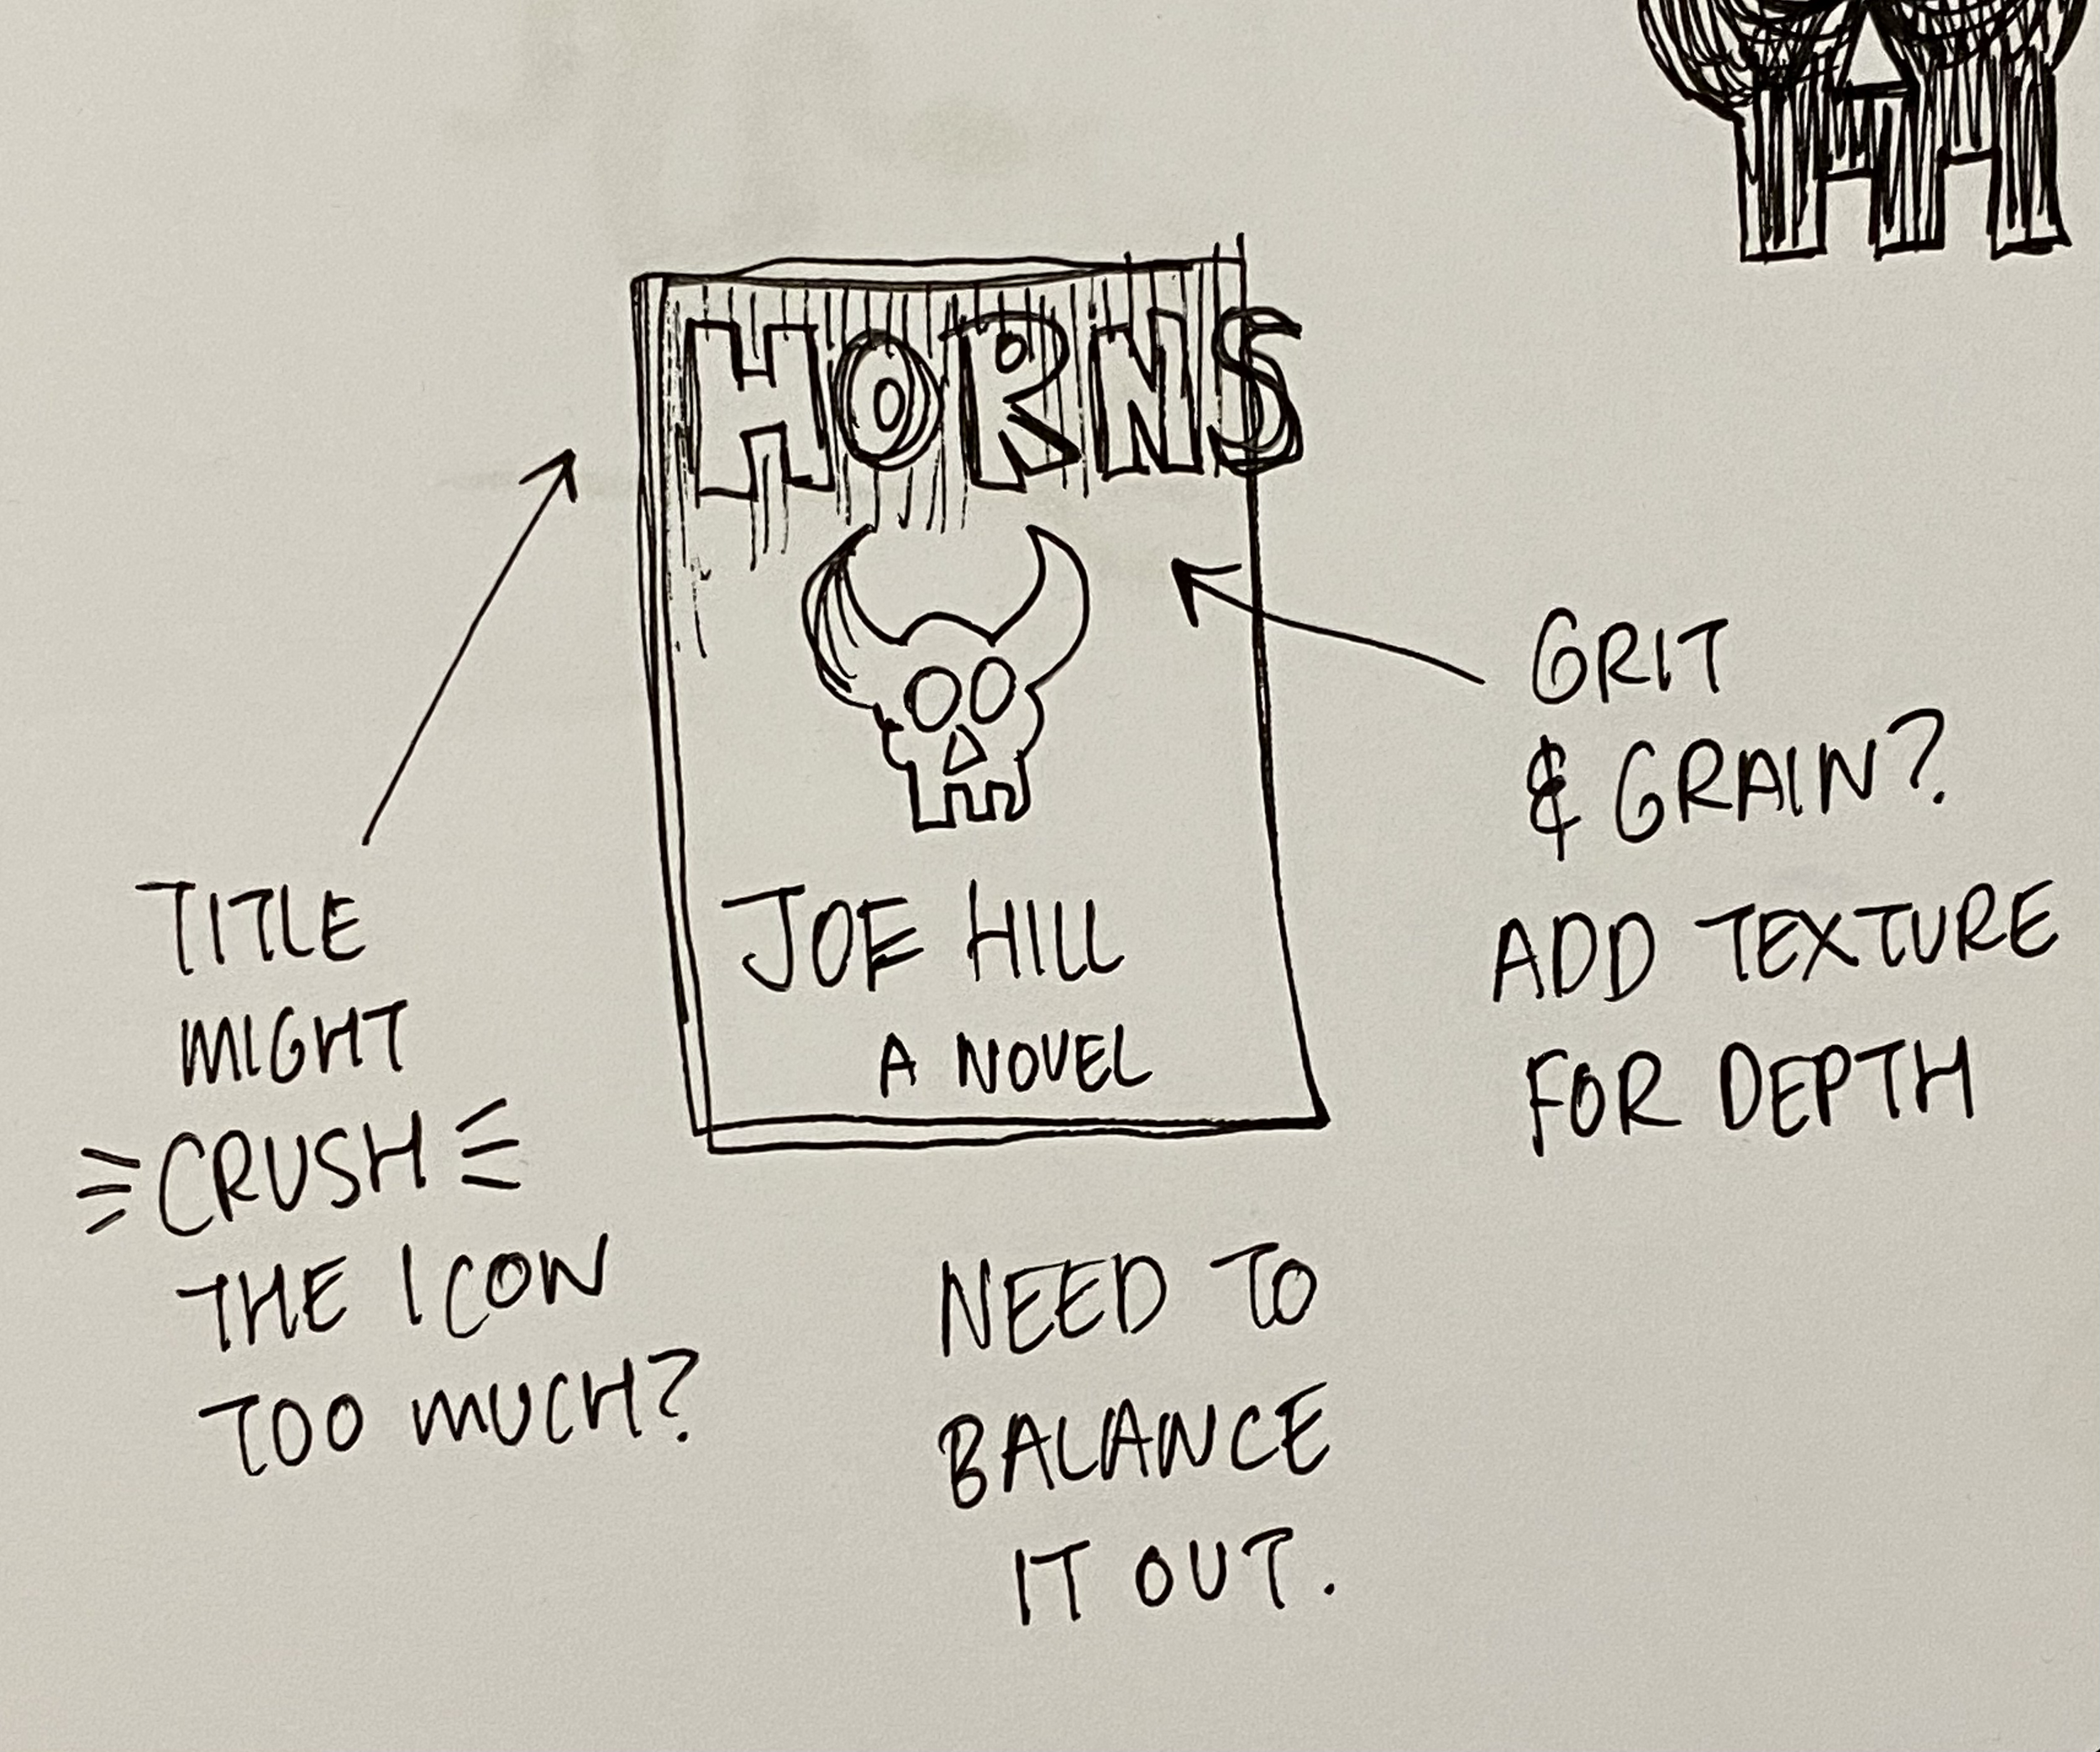 HORNS
JOE HILL
A NOVEL
TITLE
MIGHT
CRUSH
THE ICON
TOO MUCH?
GRIT
& GRAIN?
ADD TEXTURE
FOR DEPTH
NEED TO
BALANCE
IT OUT.